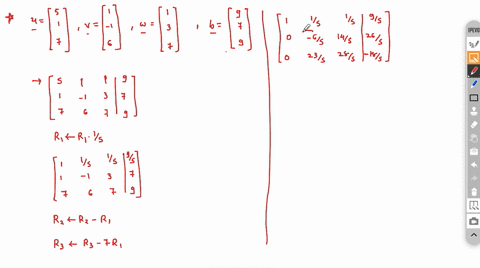 * u = [5 1 7], v = [1 -1 6], w = [1 3 7], b = [9 7 9]
→ [5 1 1 | 9
1 -1 3 | 7
7 6 7 | 9]
R₁ ← R₁ · 1/5
[1 1/5 1/5 | 9/5
1 -1 3 | 7
7 6 7 | 9]
R₂ ← R₂ - R₁
R₃ ← R₃ - 7R₁
[1 1/5 1/5 | 9/5
0 -6/5 14/5 | 26/5
0 23/5 28/5 | -18/5]